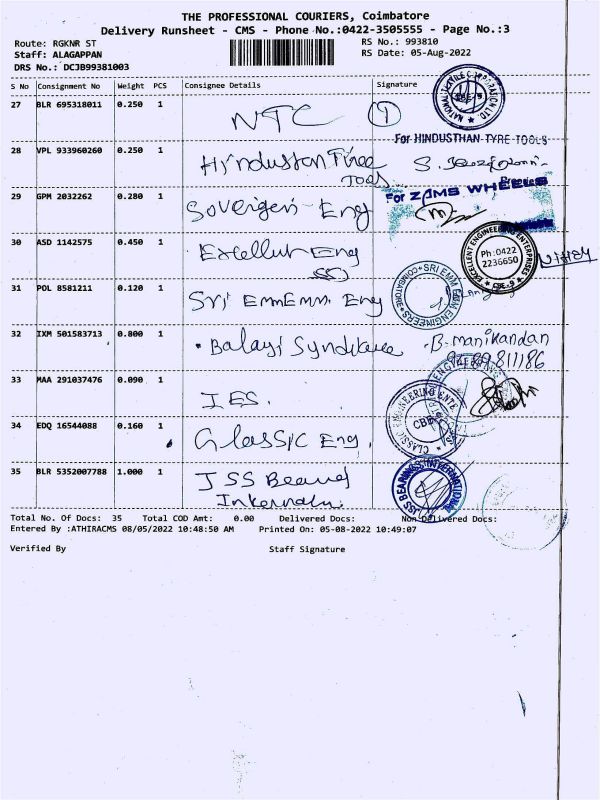 THE PROFESSIONAL COURIERS, Coimbatore
Delivery Runsheet - CMS - Phone No.:0422-3505555 - Page No.:3
Route: RGKNR ST
RS No.: 993810
Staff: ALAGAPPAN
RS Date: 05-Aug-2022
DRS No.: DCJB99381003
S No Consignment No Weight PCS Consignee Details Signature
27 BLR 695318011 0.250 1 NTC 1
For HINDUSTHAN TYRE TOOLS
28 VPL 933960260 0.250 1 Hindustan Tiree
TOOLS
For ZAMS WHEELS
29 GPM 2032262 0.280 1 Sovergein Eng
EXCELLENT ENGINEERING ENTERPRISES
Ph:0422
2236650
CBE-9
30 ASD 1142575 0.450 1 Excellent Eng
SRI EMM EMM ENGINEERS
COIMBATORE
31 POL 8581211 0.120 1 Sri EmmEmm Eng
32 IXM 501583713 0.800 1 Balayi Syndicate B. manikandan
33 MAA 291037476 0.090 1 IES.
CLASSIC ENGINEERING ENTE
CBE
34 EDQ 16544088 0.160 1 Classic Eng.
35 BLR 5352007788 1.000 1 JSS Bearing
JSS BEARINGS INTERNATIONAL
Total No. Of Docs: 35 Total COD Amt: 0.00 Delivered Docs: Non-Delivered Docs:
Entered By :ATHIRACMS 08/05/2022 10:48:50 AM Printed On: 05-08-2022 10:49:07
Verified By Staff Signature